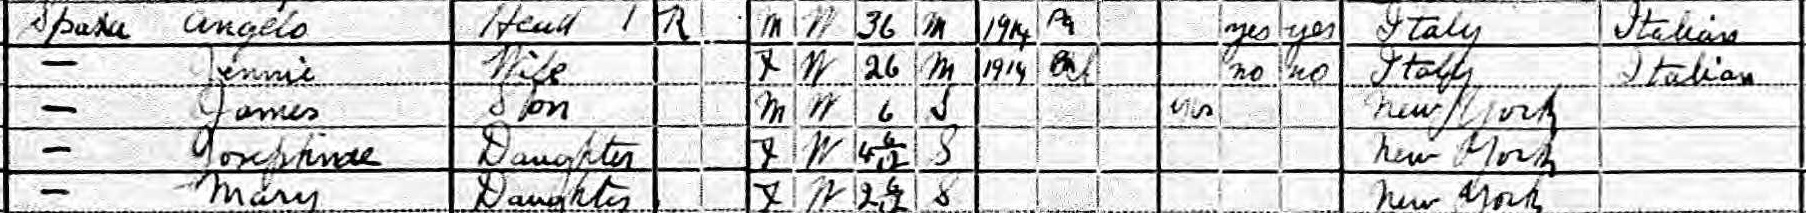 Spata Angelo Head 1 R M W 36 M 1914 Pa yes yes Italy Italian
— Jennie Wife F W 26 M 1914 no no Italy Italian
— James Son M W 6 S yes New York
— Josephine Daughter F W 4 6/12 S New York
— Mary Daughter F W 2 6/12 S New York